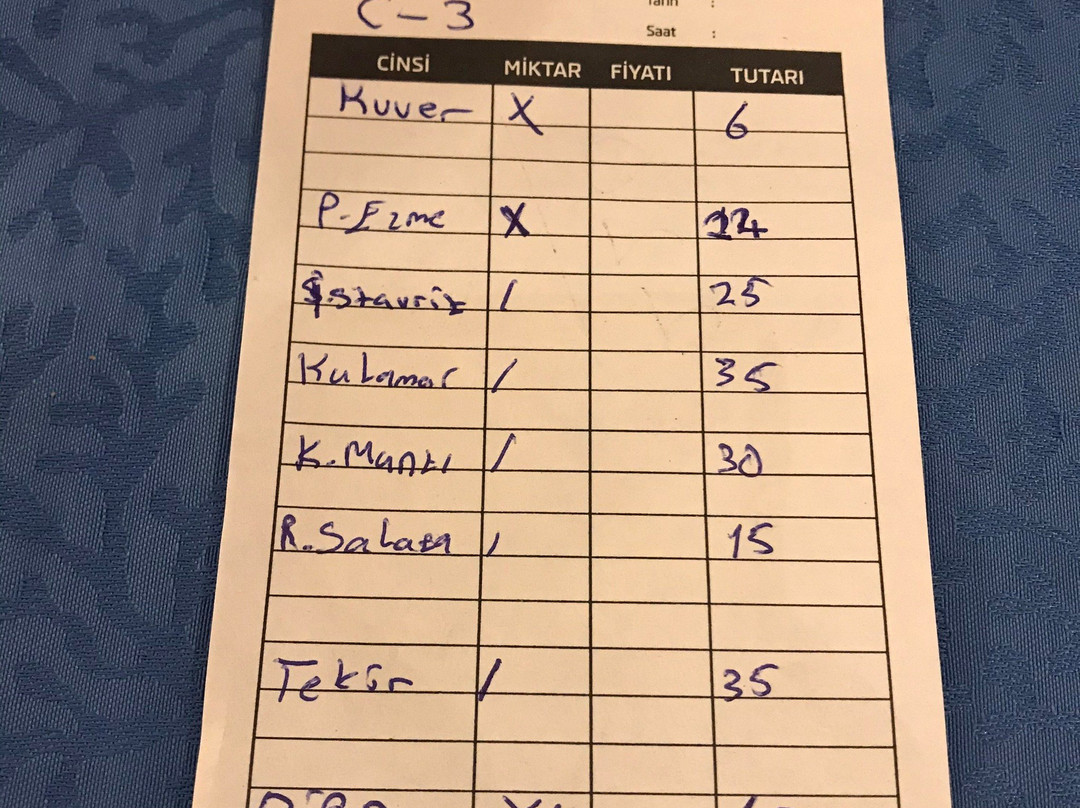 C-3
Tarih :
Saat :
CİNSİ MİKTAR FİYATI TUTARI
Kuver X 6
P.Ezme X
İstavrit / 25
Kalamar / 35
K.Mantı / 30
R.Salata / 15
Tekir / 35